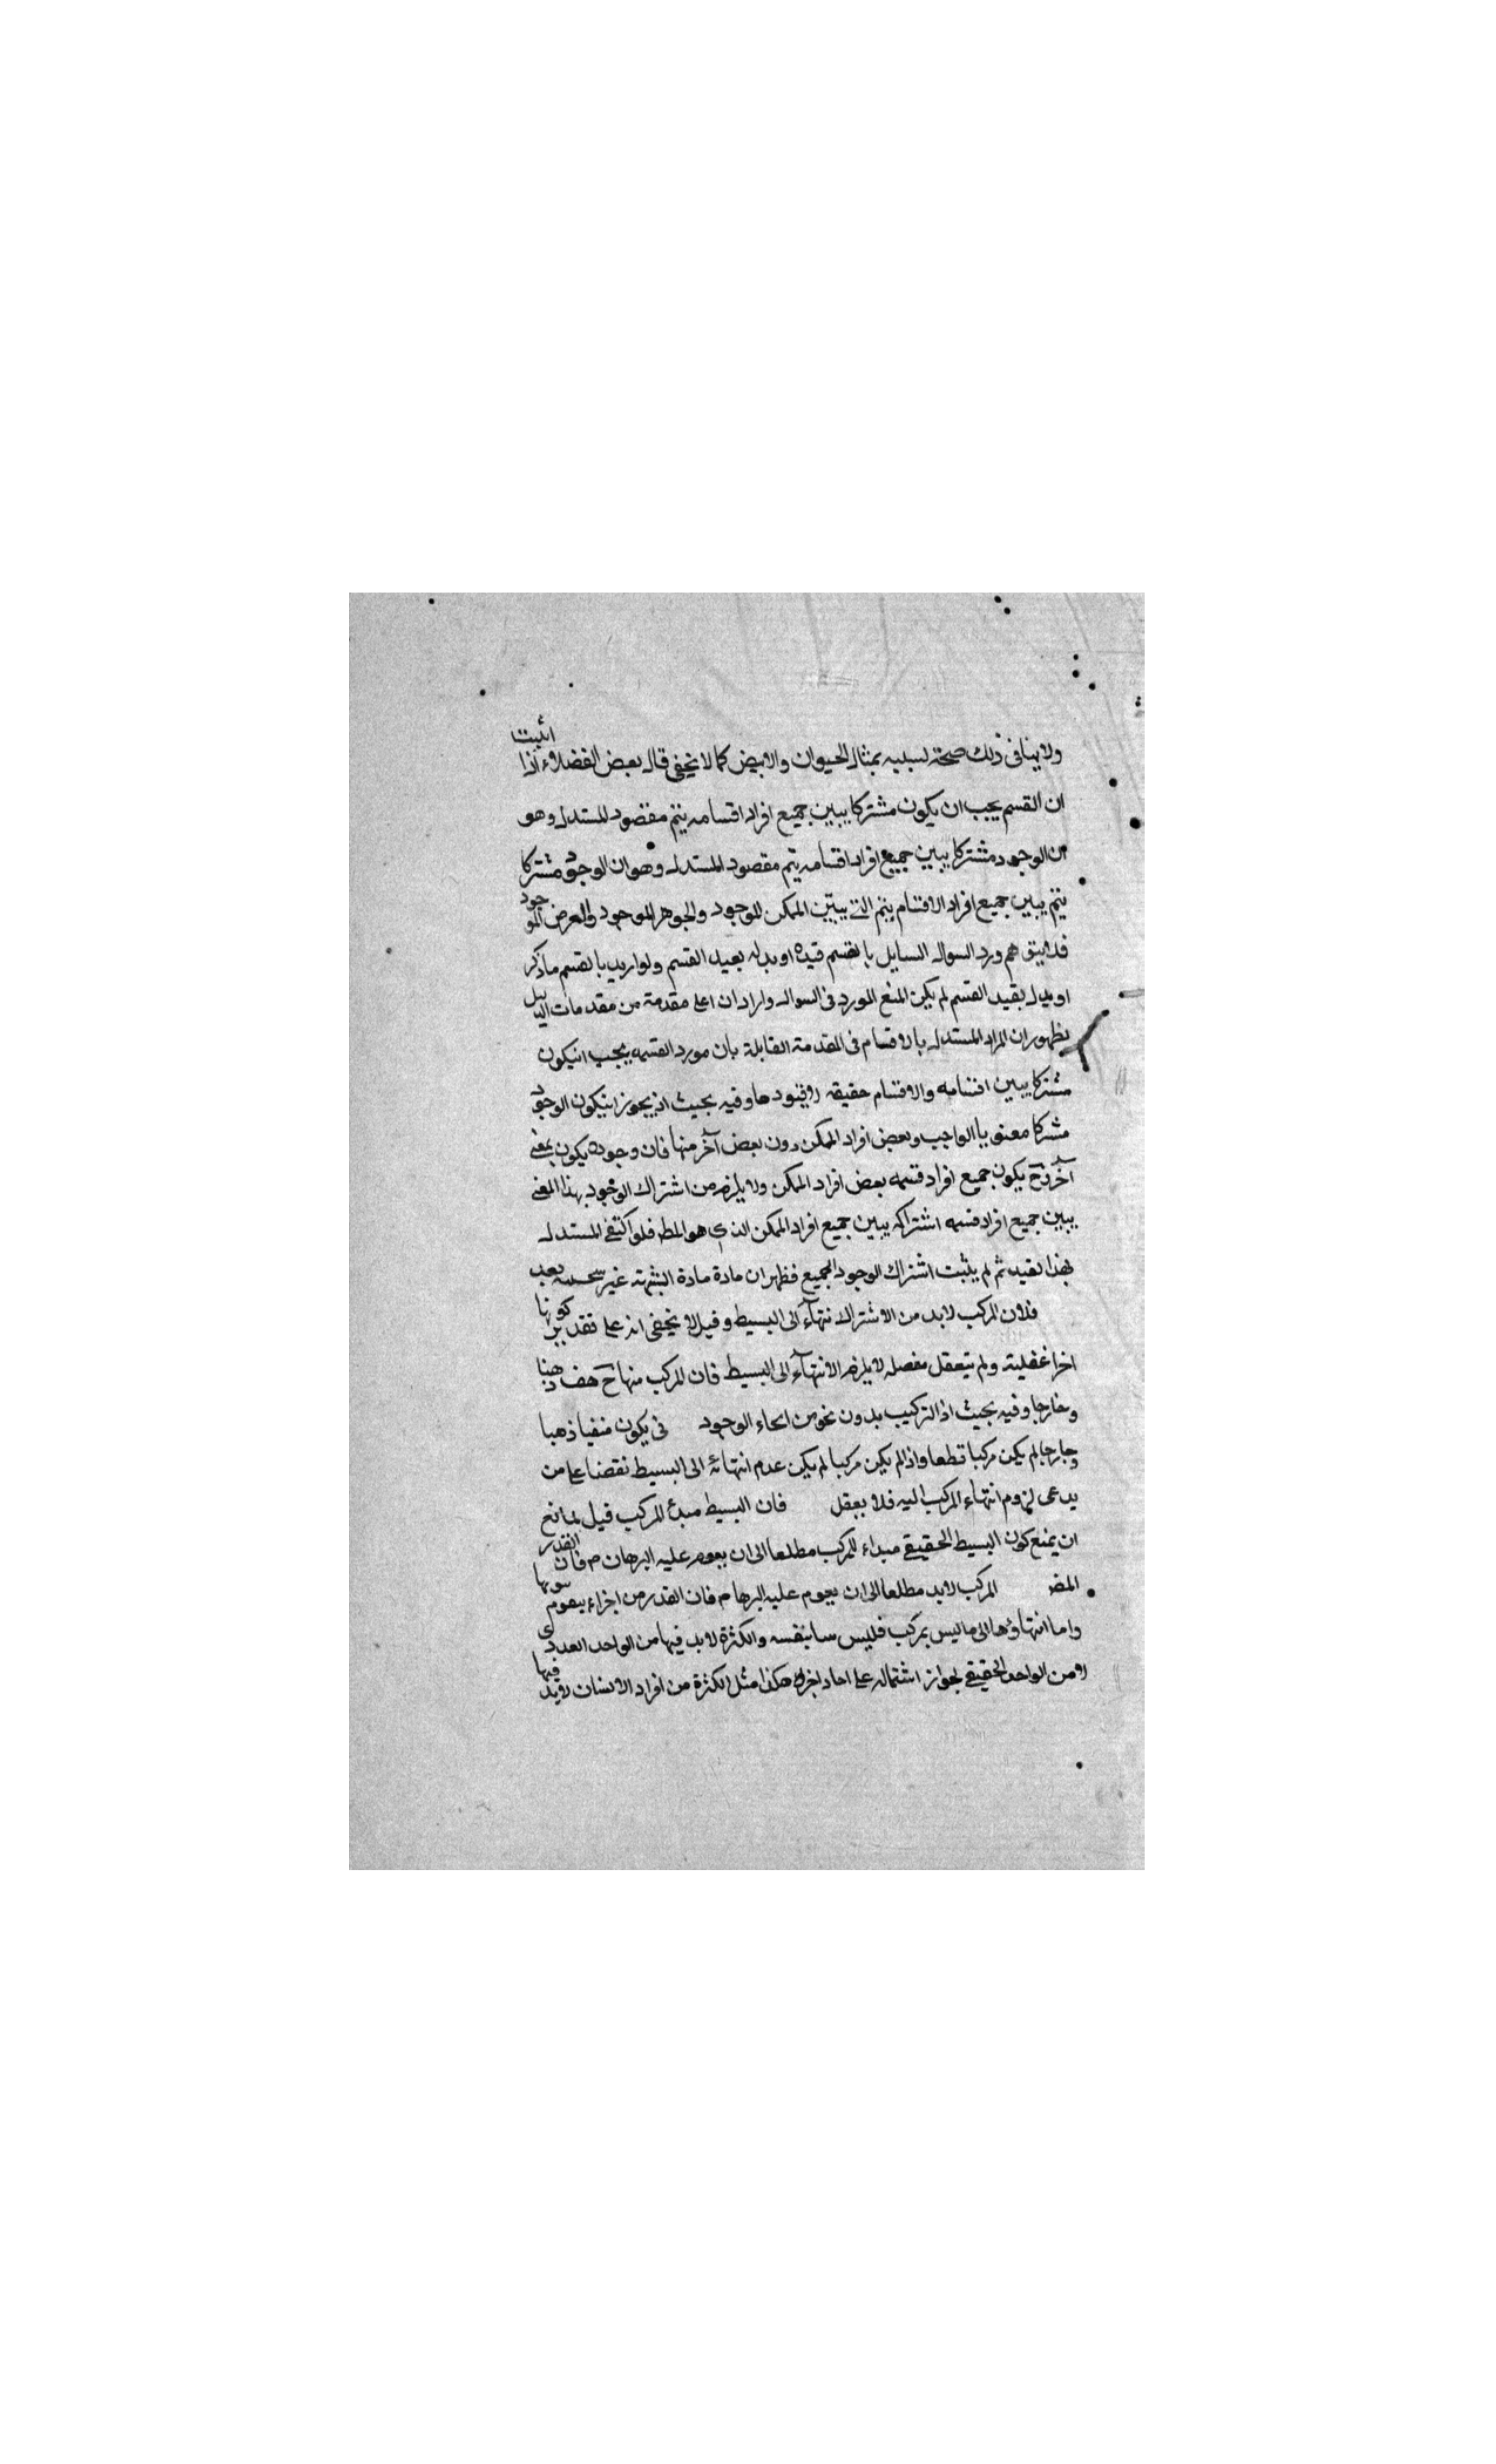 ولا ينافى ذلك صحة لسلبيه بمثال الحيوان والابيض كما لا يخفى قال بعض الفضلاء اذا اثبت
ان القسم يجب ان يكون مشتركا بين جميع افراد اقسامه يتم مقصود المستدل وهو
ان الوجود مشتركا بين جميع افراد اقسامه يتم مقصود المستدل وهو ان الوجود مشتركا
يتم بين جميع افراد الاقسام يتم التى يبين الممكن الموجود والجوهر الموجود والعرض الموجود
هم ورد السوال السايل بالقسم قيده او بدله بعيد القسم ولو اريد بالقسم ما ذكر
او بدل بقيد القسم لم يكن المنع المورد فى السوال واراد ان اعلى مقدمة من مقدمات الدليل
بظهور ان المراد المستدل بالاقسام فى المقدمة القايلة بان مورد القسمه يجب انيكون
مشتركا بين اقسامه والاقسام حقيقه لا قيودها وفيه بحيث اذ يجوز انيكون الوجود
مشركا معنويا الواجب وبعض افراد الممكن دون بعض آخر منها فان وجوده يكون بمعنى
آخر وح يكون جميع افراد قسمه بعض افراد الممكن ولا يلزم من اشتراك الوجود بهذا المعنى
بين جميع افراد قسمه اشتراكه بين جميع افراد الممكن الذى هو المط فلو اكتفى المستدل
بهذا لقيد ثم لم يثبت اشتراك الوجود الجميع فظهر ان مادة مادة الشبهته غير بعد
فلان المركب لابد من الاشتراك نتهآء الى البسيط وقيل لا يخفى انه على تقدير كونها
اخرا عقليته ولم يتعقل مفصله لا يلزم الانتهآء الى البسيط فان المركب منها ح هف ذهنا
وخارجا وفيه بحيث اذ التركيب بدون نحو من انحاء الوجود فى يكون منفيا ذهبا
وجارجا لم يكن مركبا قطعا واذا لم يكن مركبا لم يكن عدم انتهائه الى البسيط نقضا على من
يدعى لزوم انتهاء المركب اليه فلا يعقل فان البسيط مبدئ المركب قيل لمانع
ان يمنع كون البسيط الحقيقى مبداء للمركب مطلعا الى ان يعوم عليه البرهان م فان القدر
المض المركب لابد مطلعا الى ان يعوم عليه البرهام فان القدر من اجزاء يتقوم بها
واما انتهاؤها الى ما ليس بمركب فليس سا بنفسه والكثرة لابد فيها من الواحد العددى
لا من الواحد الحقيقى لجواز اشتماله على احاد اخر هكذا مثل الكثرة من افراد الانسان لابد فيها